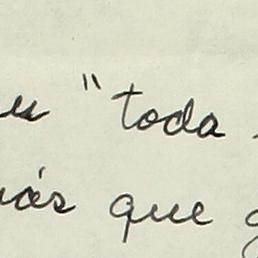 "toda
más que